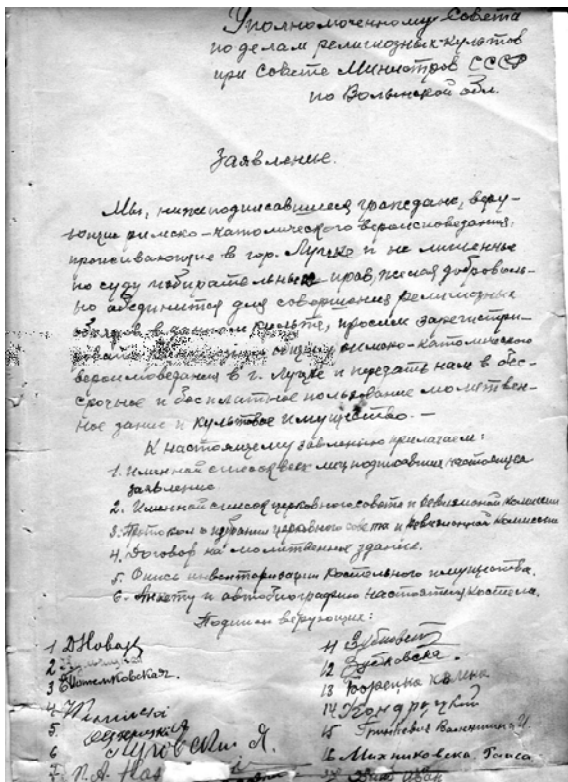 Уполномоченному Совета
по делам религиозных культов
при Совете Министров СССР
по Волынской обл.
Заявление.
Мы, нижеподписавшиеся граждане, веру-
ющие римско-католического вероисповедания,
проживающие в гор. Луцке и не лишенные
по суду избирательных прав, желая доброволь-
но объединится для совершения религиозных
обрядов в культе, просим зарегистри-
римско-католического
вероисповедания в г. Луцке и передать нам в бес-
срочное и бесплатное пользование молитвен-
ное здание и культовое имущество. —
К настоящему заявлению прилагаем:
1. Именной список всех лиц подписавших настоящее
заявление
2. Именной список церковного совета и ревизионной комиссии
3. Протокол о избрании церковного совета и ревизионной комиссии
4. Договор на молитвенное здание.
5. Опись инвентаризации костельного имущества.
6. Анкету и автобиографию настоятеля костела.
Подписи верующих:
1 ДНовац
2
3 Е Потемковская.
4
5.
6 Я.
7. П. А.
11
12 Зубковска.
13
14
15 Гринкевич Валентина И.
16 Михниковска Таиса
Иван